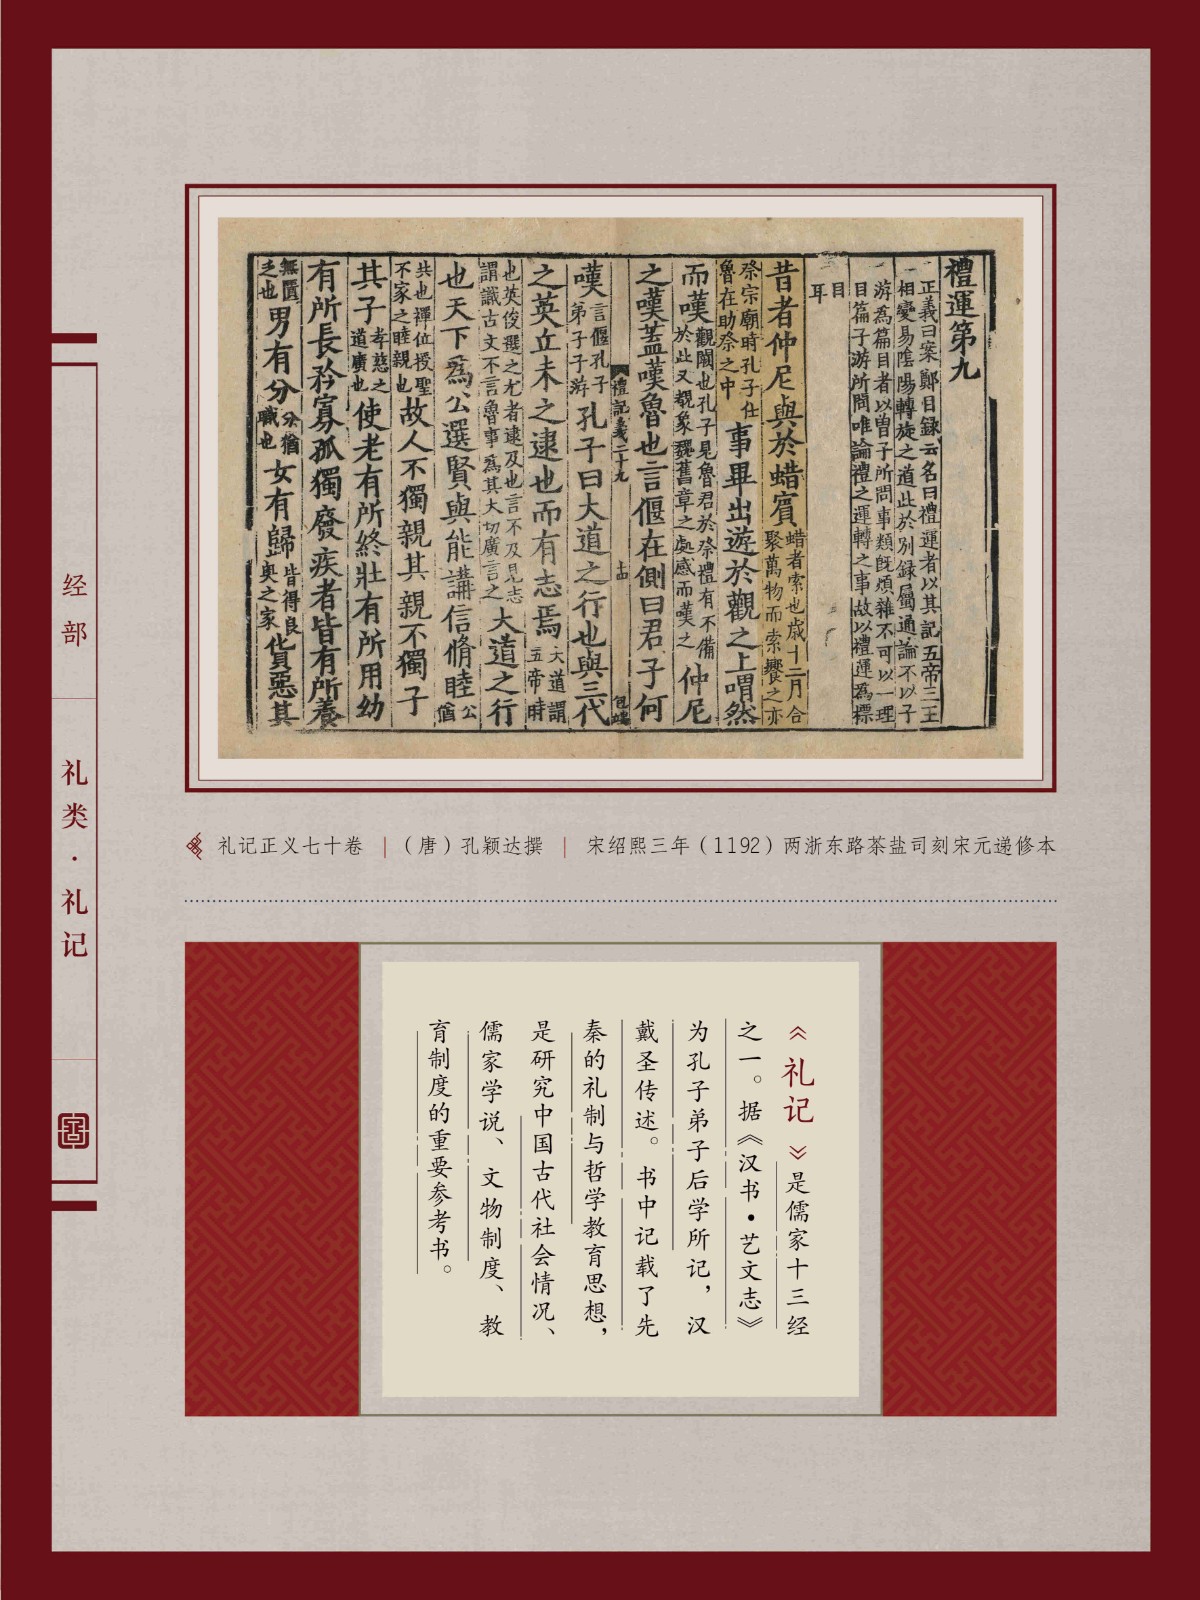 禮運第九
正義曰案鄭目録云名曰禮運者以其記五帝三王
相變易隂陽轉旋之道此於別録屬通論不以子
游為篇目者以曽子所問事類既煩雜不可以一理
目篇子游所問唯論禮之運轉之事故以禮運為標
目
耳
昔者仲尼與於蜡賓蜡者索也歲十二月合聚萬物而索饗之亦
祭宗廟時孔子仕魯在助祭之中事畢出遊於觀之上喟然
而嘆觀闕也孔子見魯君於祭禮有不備於此又覩象魏舊章之處感而嘆之仲尼
之嘆蓋嘆魯也言偃在側曰君子何
禮記義二十九
包端
嘆言偃孔子弟子子游孔子曰大道之行也與三代
之英丘未之逮也而有志焉大道謂五帝時
也英俊選之尤者逮及也言不及見志謂識古文不言魯事為其大切廣言之大道之行
也天下為公選賢與能講信脩睦公猶
共也禪位授聖不家之睦親也故人不獨親其親不獨子
其子孝慈之道廣也使老有所終壯有所用幼
有所長矜寡孤獨廢疾者皆有所養
無匱乏也男有分分猶職也女有歸皆得良奧之家貨惡其
礼记正义七十卷 | (唐)孔颖达撰 | 宋绍熙三年(1192)两浙东路茶盐司刻宋元递修本
经部
礼类·礼记
《礼记》是儒家十三经
之一。据《汉书·艺文志》
为孔子弟子后学所记，汉
戴圣传述。书中记载了先
秦的礼制与哲学教育思想，
是研究中国古代社会情况、
儒家学说、文物制度、教
育制度的重要参考书。